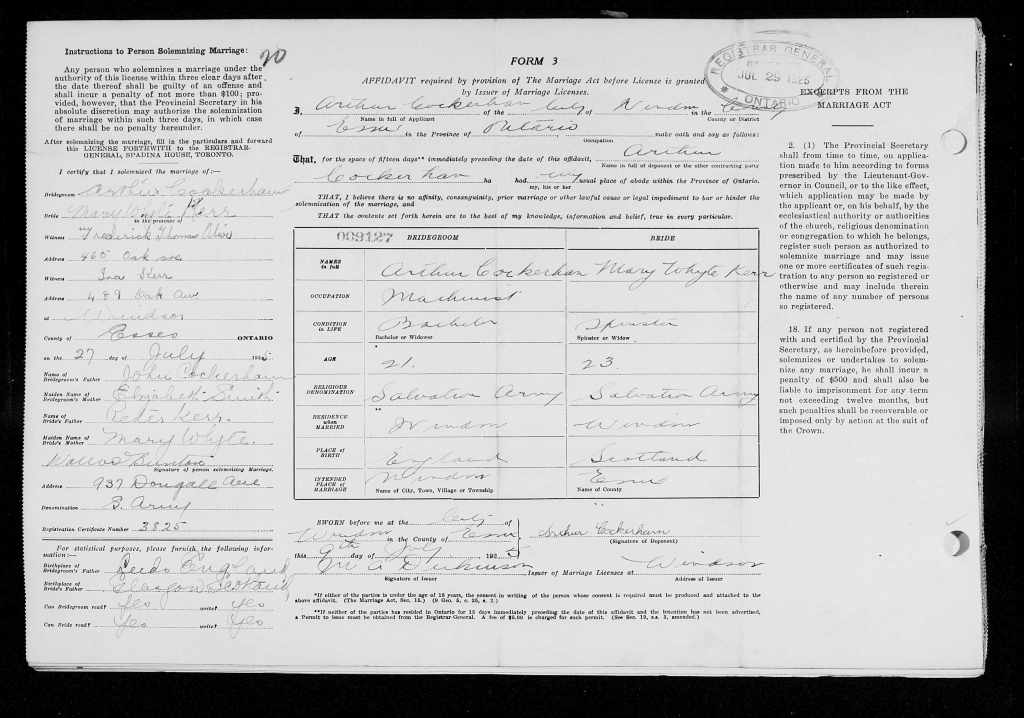 Instructions to Person Solemnizing Marriage:
20
Any person who solemnizes a marriage under the
authority of this license within three clear days after
the date thereof shall be guilty of an offense and
shall incur a penalty of not more than $100; pro-
vided, however, that the Provincial Secretary in his
absolute discretion may authorize the solemnization
of marriage within such three days, in which case
there shall be no penalty hereunder.
After solemnizing the marriage, fill in the particulars and forward
this LICENSE FORTHWITH to the REGISTRAR-
GENERAL, SPADINA HOUSE, TORONTO.
I certify that I solemnized the marriage of:—
Bridegroom Arthur Cockerham
Bride Mary Whyte Kerr
in the presence of
Witness Frederick Thomas
Address 465 Oak ave
Witness Ina Kerr
Address 489 Oak Ave
at Windsor
County of Essex ONTARIO
on the 27 day of July 1925.
Name of Bridegroom's Father John Cockerham
Maiden Name of Bridegroom's Mother Elizabeth Smith
Name of Bride's Father Peter Kerr.
Maiden Name of Bride's Mother Mary Whyte.
Wallace Bunton
Signature of person solemnizing Marriage.
Address 937 Dougall Ave
Denomination S. Army
Registration Certificate Number 3825
For statistical purposes, please furnish the following infor-
mation:—
Birthplace of Bridegroom's Father Leeds England
Birthplace of Bride's Father Glasgow Scotland
Can Bridegroom read? Yes write? Yes
Can Bride read? Yes write? Yes
FORM 3
AFFIDAVIT required by provision of The Marriage Act before Licence is granted
by Issuer of Marriage Licenses.
I, Arthur Cockerham City of the of Windsor in the County
Name in full of Applicant County or District
of Essex in the Province of Ontario make oath and say as follows:
Occupation
That, for the space of fifteen days** immediately preceding the date of this affidavit, Arthur
Name in full of deponent or the other contracting party
Cockerham ha had my usual place of abode within the Province of Ontario.
my, his or her
THAT, I believe there is no affinity, consanguinity, prior marriage or other lawful cause or legal impediment to bar or hinder the
solemnization of the marriage, and
THAT the contents set forth herein are to the best of my knowledge, information and belief, true in every particular.
009127 BRIDEGROOM BRIDE
NAMES in full Arthur Cockerham Mary Whyte Kerr
OCCUPATION Machinist
CONDITION in LIFE Bachelor Spinster
Bachelor or Widower Spinster or Widow
AGE * 21. 23.
RELIGIOUS DENOMINATION Salvation Army Salvation Army
RESIDENCE when MARRIED ** Windsor Windsor
PLACE of BIRTH England Scotland
INTENDED PLACE of MARRIAGE Windsor Essex
Name of City, Town, Village or Township Name of County
SWORN before me at the City of
Windsor in the County of Essex
this 9th day of July 1925
Arthur Cockerham
(Signature of Deponent)
Dickinson Issuer of Marriage Licenses at Windsor
Signature of Issuer Address of Issuer
*If either of the parties is under the age of 18 years, the consent in writing of the person whose consent is required must be produced and attached to the
above affidavit. (The Marriage Act, Sec. 15.) (9 Geo. 5, c. 35, s. 2.)
**If neither of the parties has resided in Ontario for 15 days immediately preceding the date of this affidavit and the intention has not been advertised,
a Permit to issue must be obtained from the Registrar-General. A fee of $5.00 is charged for such permit. (See Sec. 19, s.s. 3, amended.)
REGISTRAR GENERAL
JUL 29 1925
ONTARIO
EXCERPTS FROM THE
MARRIAGE ACT
2. (1) The Provincial Secretary
shall from time to time, on applica-
tion made to him according to forms
prescribed by the Lieutenant-Gov-
ernor in Council, or to the like effect,
which application may be made by
the applicant or, on his behalf, by the
ecclesiastical authority or authorities
of the church, religious denomination
or congregation to which he belongs,
register such person as authorized to
solemnize marriage and may issue
one or more certificates of such regis-
tration to any person so registered or
otherwise and may include therein
the name of any number of persons
so registered.
18. If any person not registered
with and certified by the Provincial
Secretary, as hereinbefore provided,
solemnizes or undertakes to solem-
nize any marriage, he shall incur a
penalty of $500 and shall also be
liable to imprisonment for any term
not exceeding twelve months, but
such penalties shall be recoverable or
imposed only by action at the suit of
the Crown.